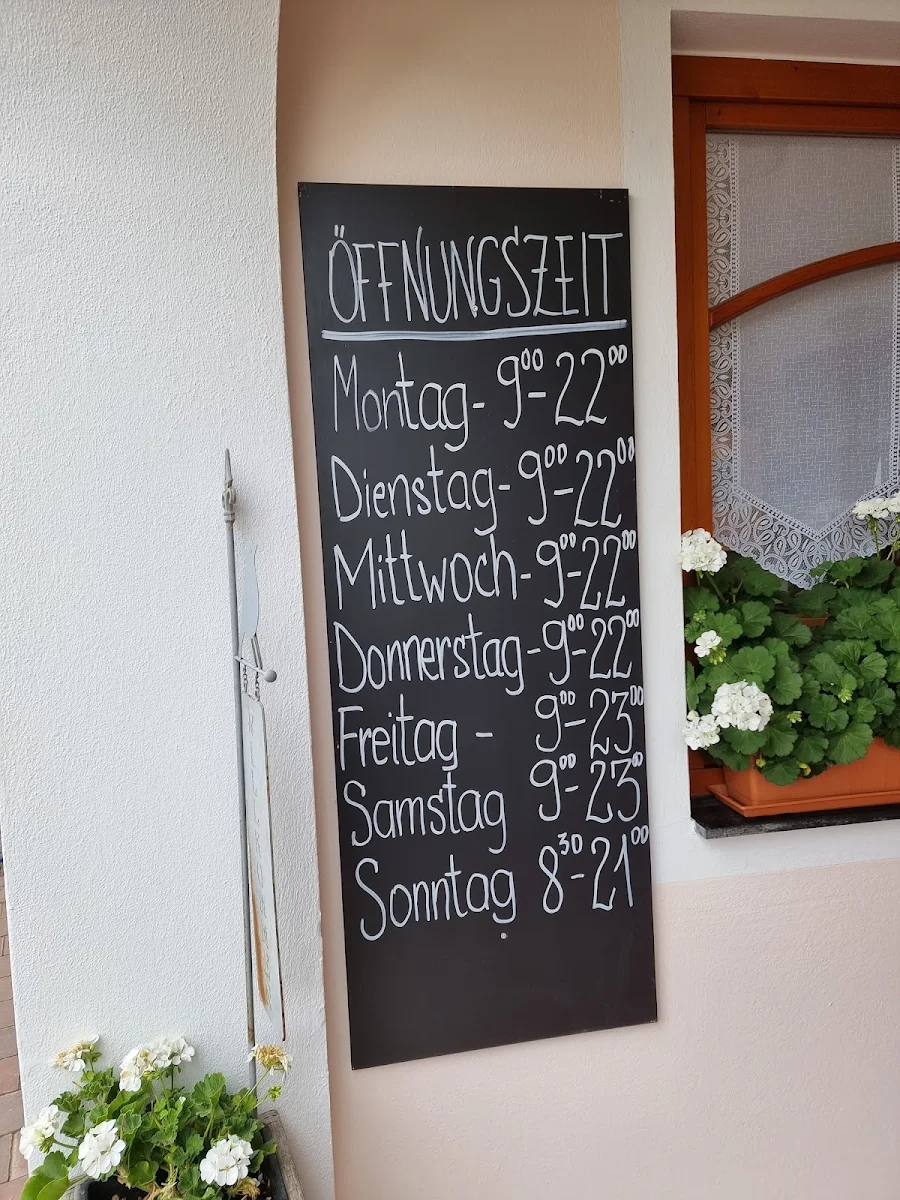 ÖFFNUNGSZEIT
Montag- 9⁰⁰-22⁰⁰
Dienstag-9⁰⁰-22⁰⁰
Mittwoch-9⁰⁰-22⁰⁰
Donnerstag-9⁰⁰-22⁰⁰
Freitag - 9⁰⁰-23⁰⁰
Samstag 9⁰⁰-23⁰⁰
Sonntag 8³⁰-21⁰⁰